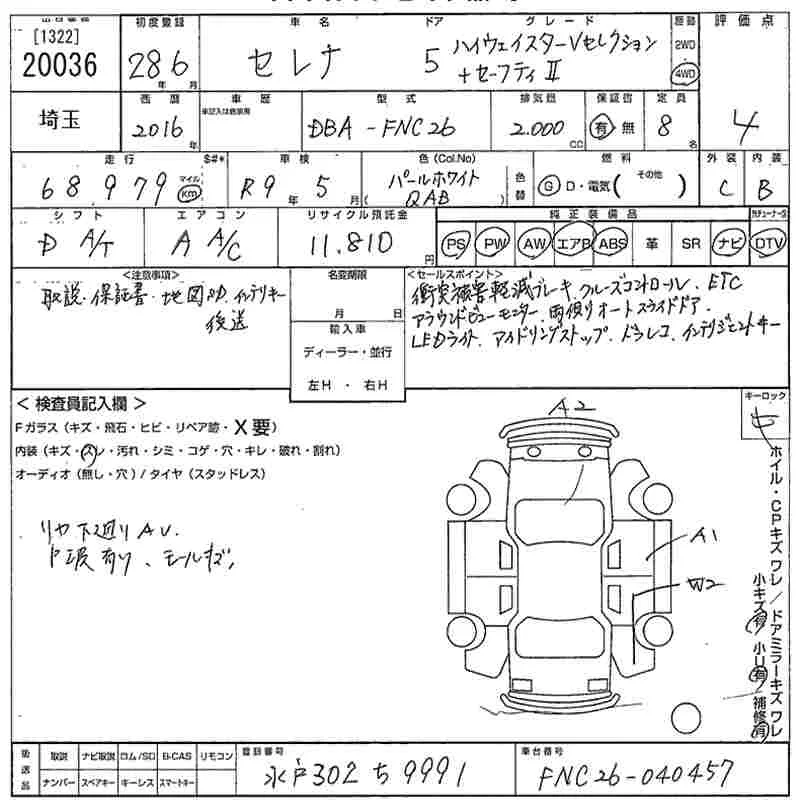 初度登録 車名 ドア グレード 駆動 評価点
[1322]
20036
28 6
年 月
セレナ
5
ハイウェイスターVセレクション
+セーフティⅡ
2WD
4WD
埼玉
西暦 車歴 型式 排気量 保証書 定員
車記入は自家用
2016
年
DBA-FNC26
2.000
CC
有 無
8
名
4
走行 S#* 車検 色(Col.No) 燃料 外装 内装
68,979
マイル
km
R9 年 5 月
パールホワイト
( QAB )
色替
G D・電気( その他 )
C
B
シフト エアコン リサイクル預託金 純正装備品
D A/T
A A/C
11.810
円
PS PW AW エアB ABS 革 SR ナビ DTV
<注意事項>
取説・保証書・地図RD.インテリキー
後送
名変期限
月 日
輸入車
ディーラー・並行
左H ・ 右H
<セールスポイント>
衝突被害軽減ブレーキ.クルーズコントロール.ETC
アラウンドビューモニター.両側オートスライドドア.
LEDライト.アイドリングストップ.ドラレコ.インテリジェントキー
<検査員記入欄>
Fガラス(キズ・飛石・ヒビ・リペア跡・X要)
内装(キズ・スレ・汚れ・シミ・コゲ・穴・キレ・破れ・割れ)
オーディオ(無し・穴)/タイヤ(スタッドレス)
リヤ下廻りAU.
モールキズ,
A2
A1
W2
キーロック
ホイル・CPキズワレ/ドアミラーキズワレ
小キズ有 小U有 補修有
後送品
取説 ナビ取説 ロム/SD B-CAS リモコン
ナンバー スペアキー キーシス スマートキー
登録番号
水戸302ち9991
車台番号
FNC26-040457